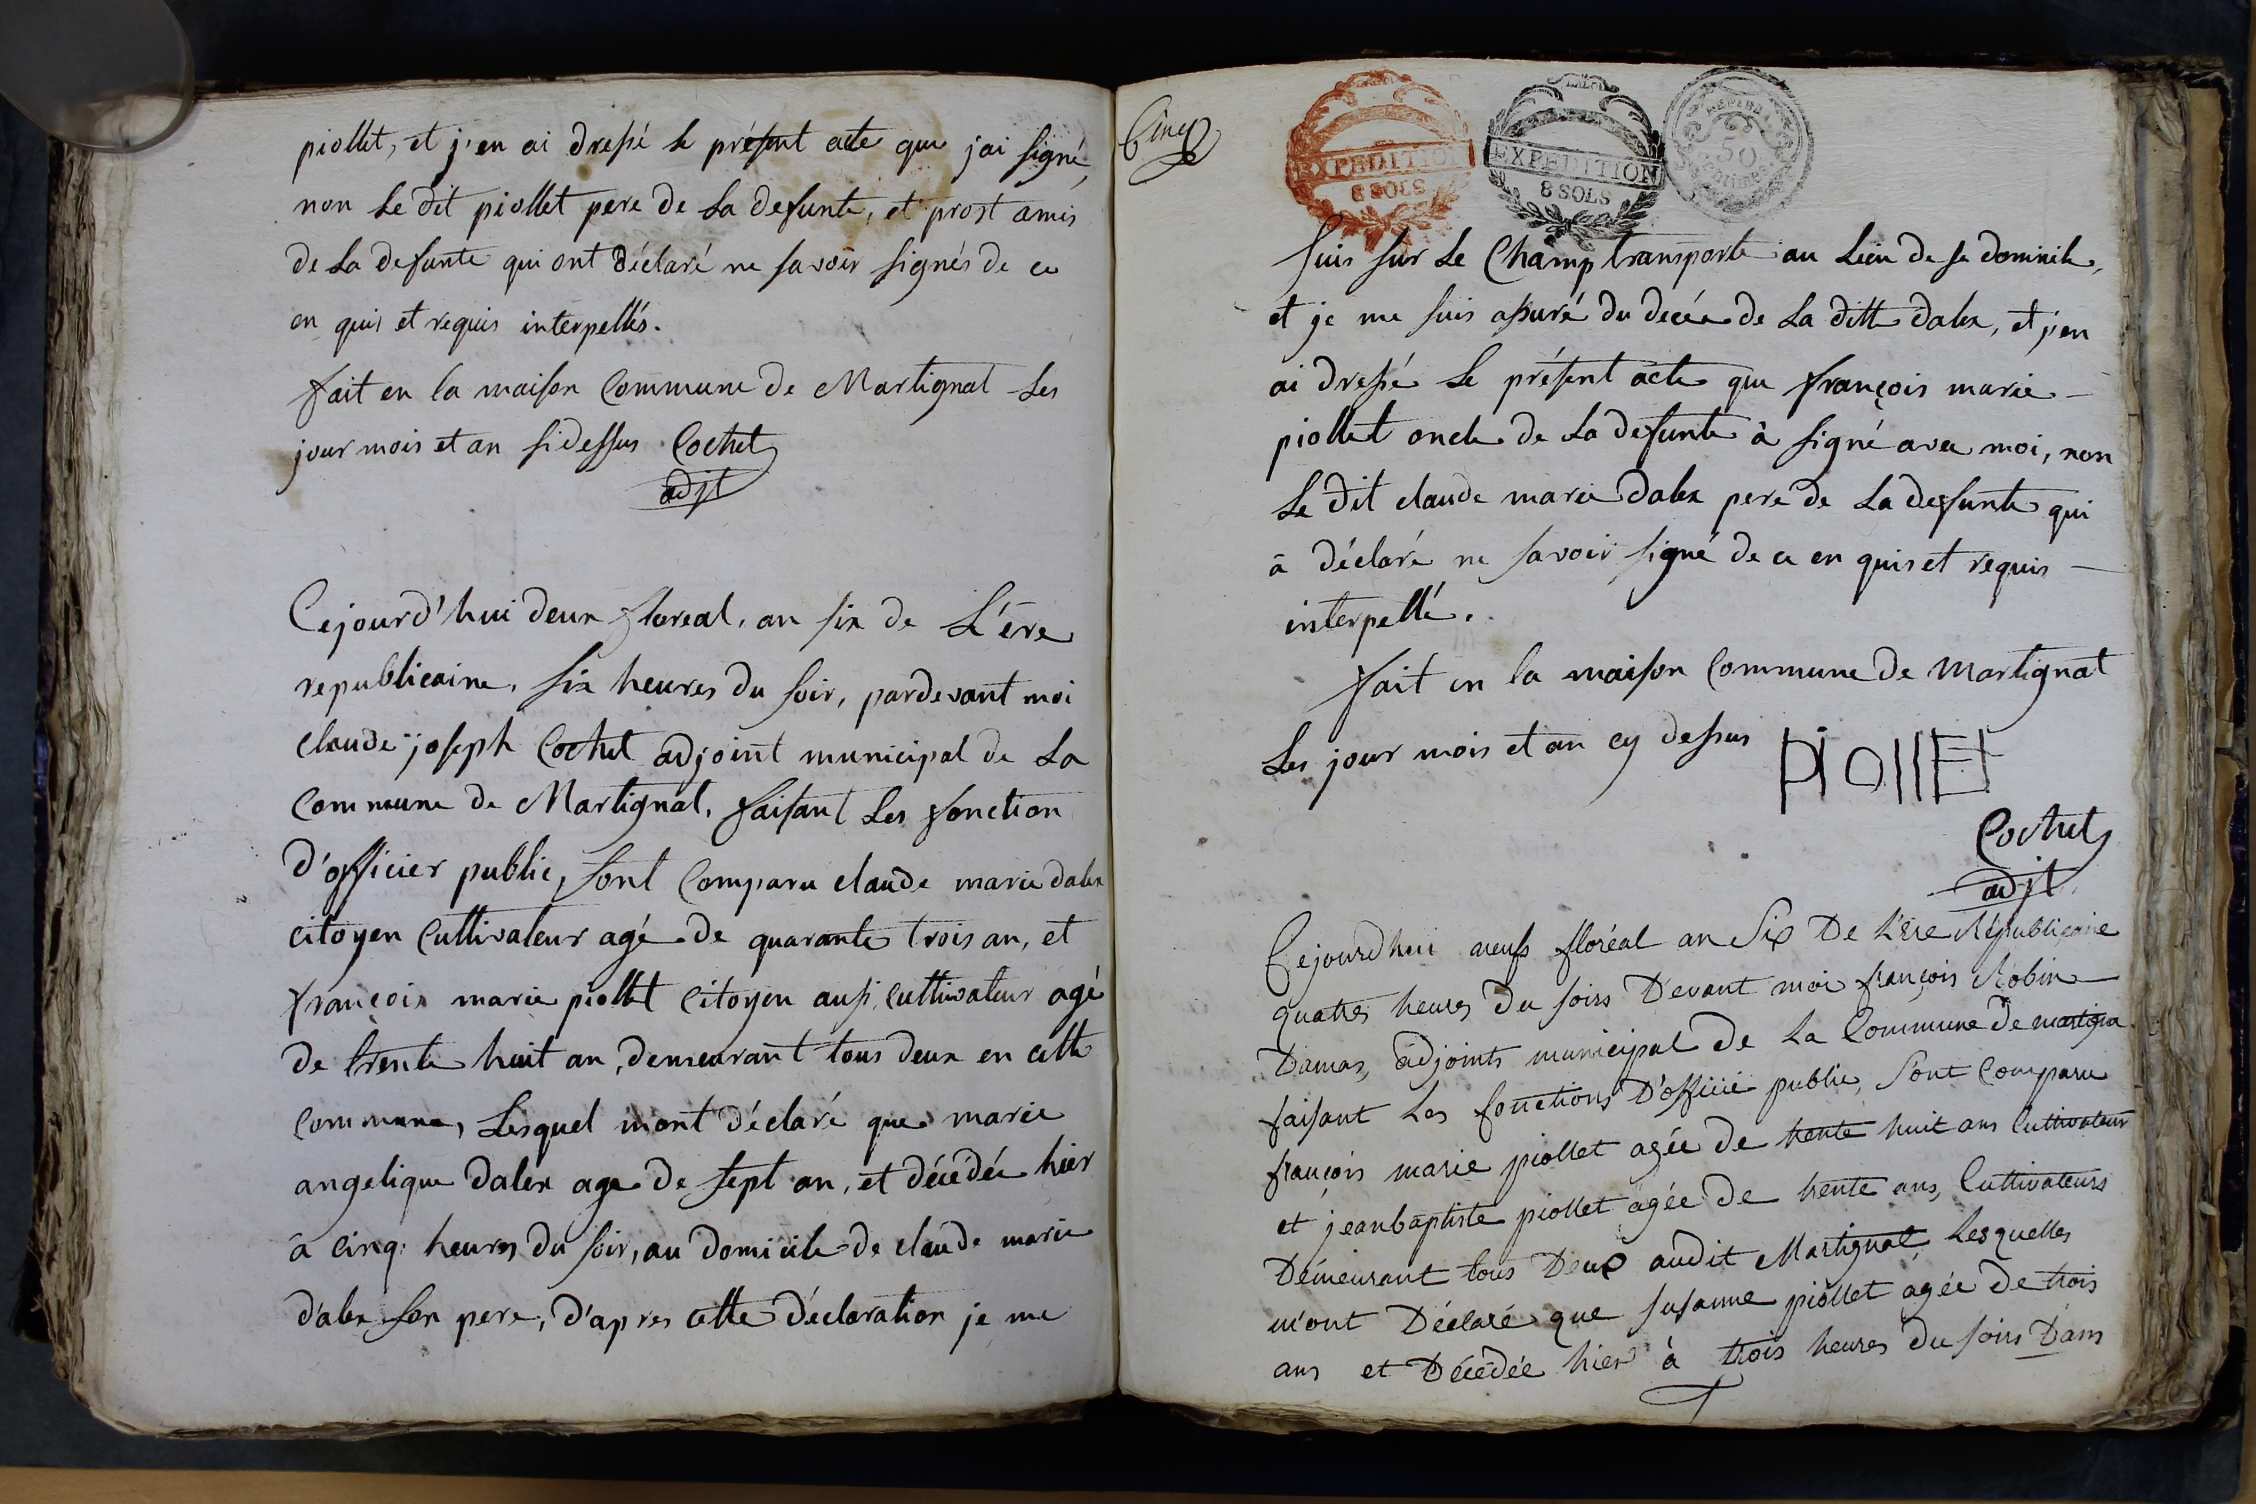 piollet, et j'en ai dressé le présent acte que jai signé,
non le dit piollet pere de la defunte, et prost amis
de la defunte qui ont déclaré ne savoir signés de ce
en quis et requis interpellés.
fait en la maison Commune de Martignat les
jour mois et an sidessus Cochet
adjt
Cejourd'hui deux floreal, an six de L'ère
republicaine, six heures du soir, pardevant moi
claude joseph Cochet adjoint municipal de la
Commune de Martignat, faisant les fonction
d'officier public, sont Comparu claude marie dalex
citoyen Cultivateur agé de quarante trois an, et
françois marie piollet Citoyen aussi Cultivateur agé
de trente huit an, demeurant tous deux en cette
Commune, lesquel m'ont déclaré que marie
angelique dalex age de sept an, et décédée hier
à cinq heures du soir, au domicile de claude marie
dalex son pere, d'apres cette déclaration je me
Cinq
EXPEDITION
8 SOLS
EXPEDITION
8 SOLS
50
suis sur le Champ transporte au lieu de se domicile,
et je me suis assuré du decée de la ditte dalex, et j'en
ai dressé le présent acte que françois marie
piollet oncle de la defunte à signé avec moi, non
le dit claude marie dalex pere de la defunte qui
à déclaré ne savoir signé de ce en quis et requis
interpellé.
fait en la maison Commune de Martignat
les jour mois et an cy dessus PIOLLET
Cochet
adjt
Cejourdhui neufs floréal an Six De L'ere Républicaine
quatres heures du soirs Devant moi françois Robin
Damas, adjoints municipal De La Commune De martigna
faisant Les fonctions D'officié public, Sont Comparu
françois marie piollet agée De trente huit ans Cultivateur
et jeanbaptiste piollet agée De trente ans, Cultivateurs
Demeurant tous Deux audit Martignat, Lesquelles
m'ont Déclaré que susanne piollet agée De trois
ans et Décédée hier à trois heures du soirs Dans